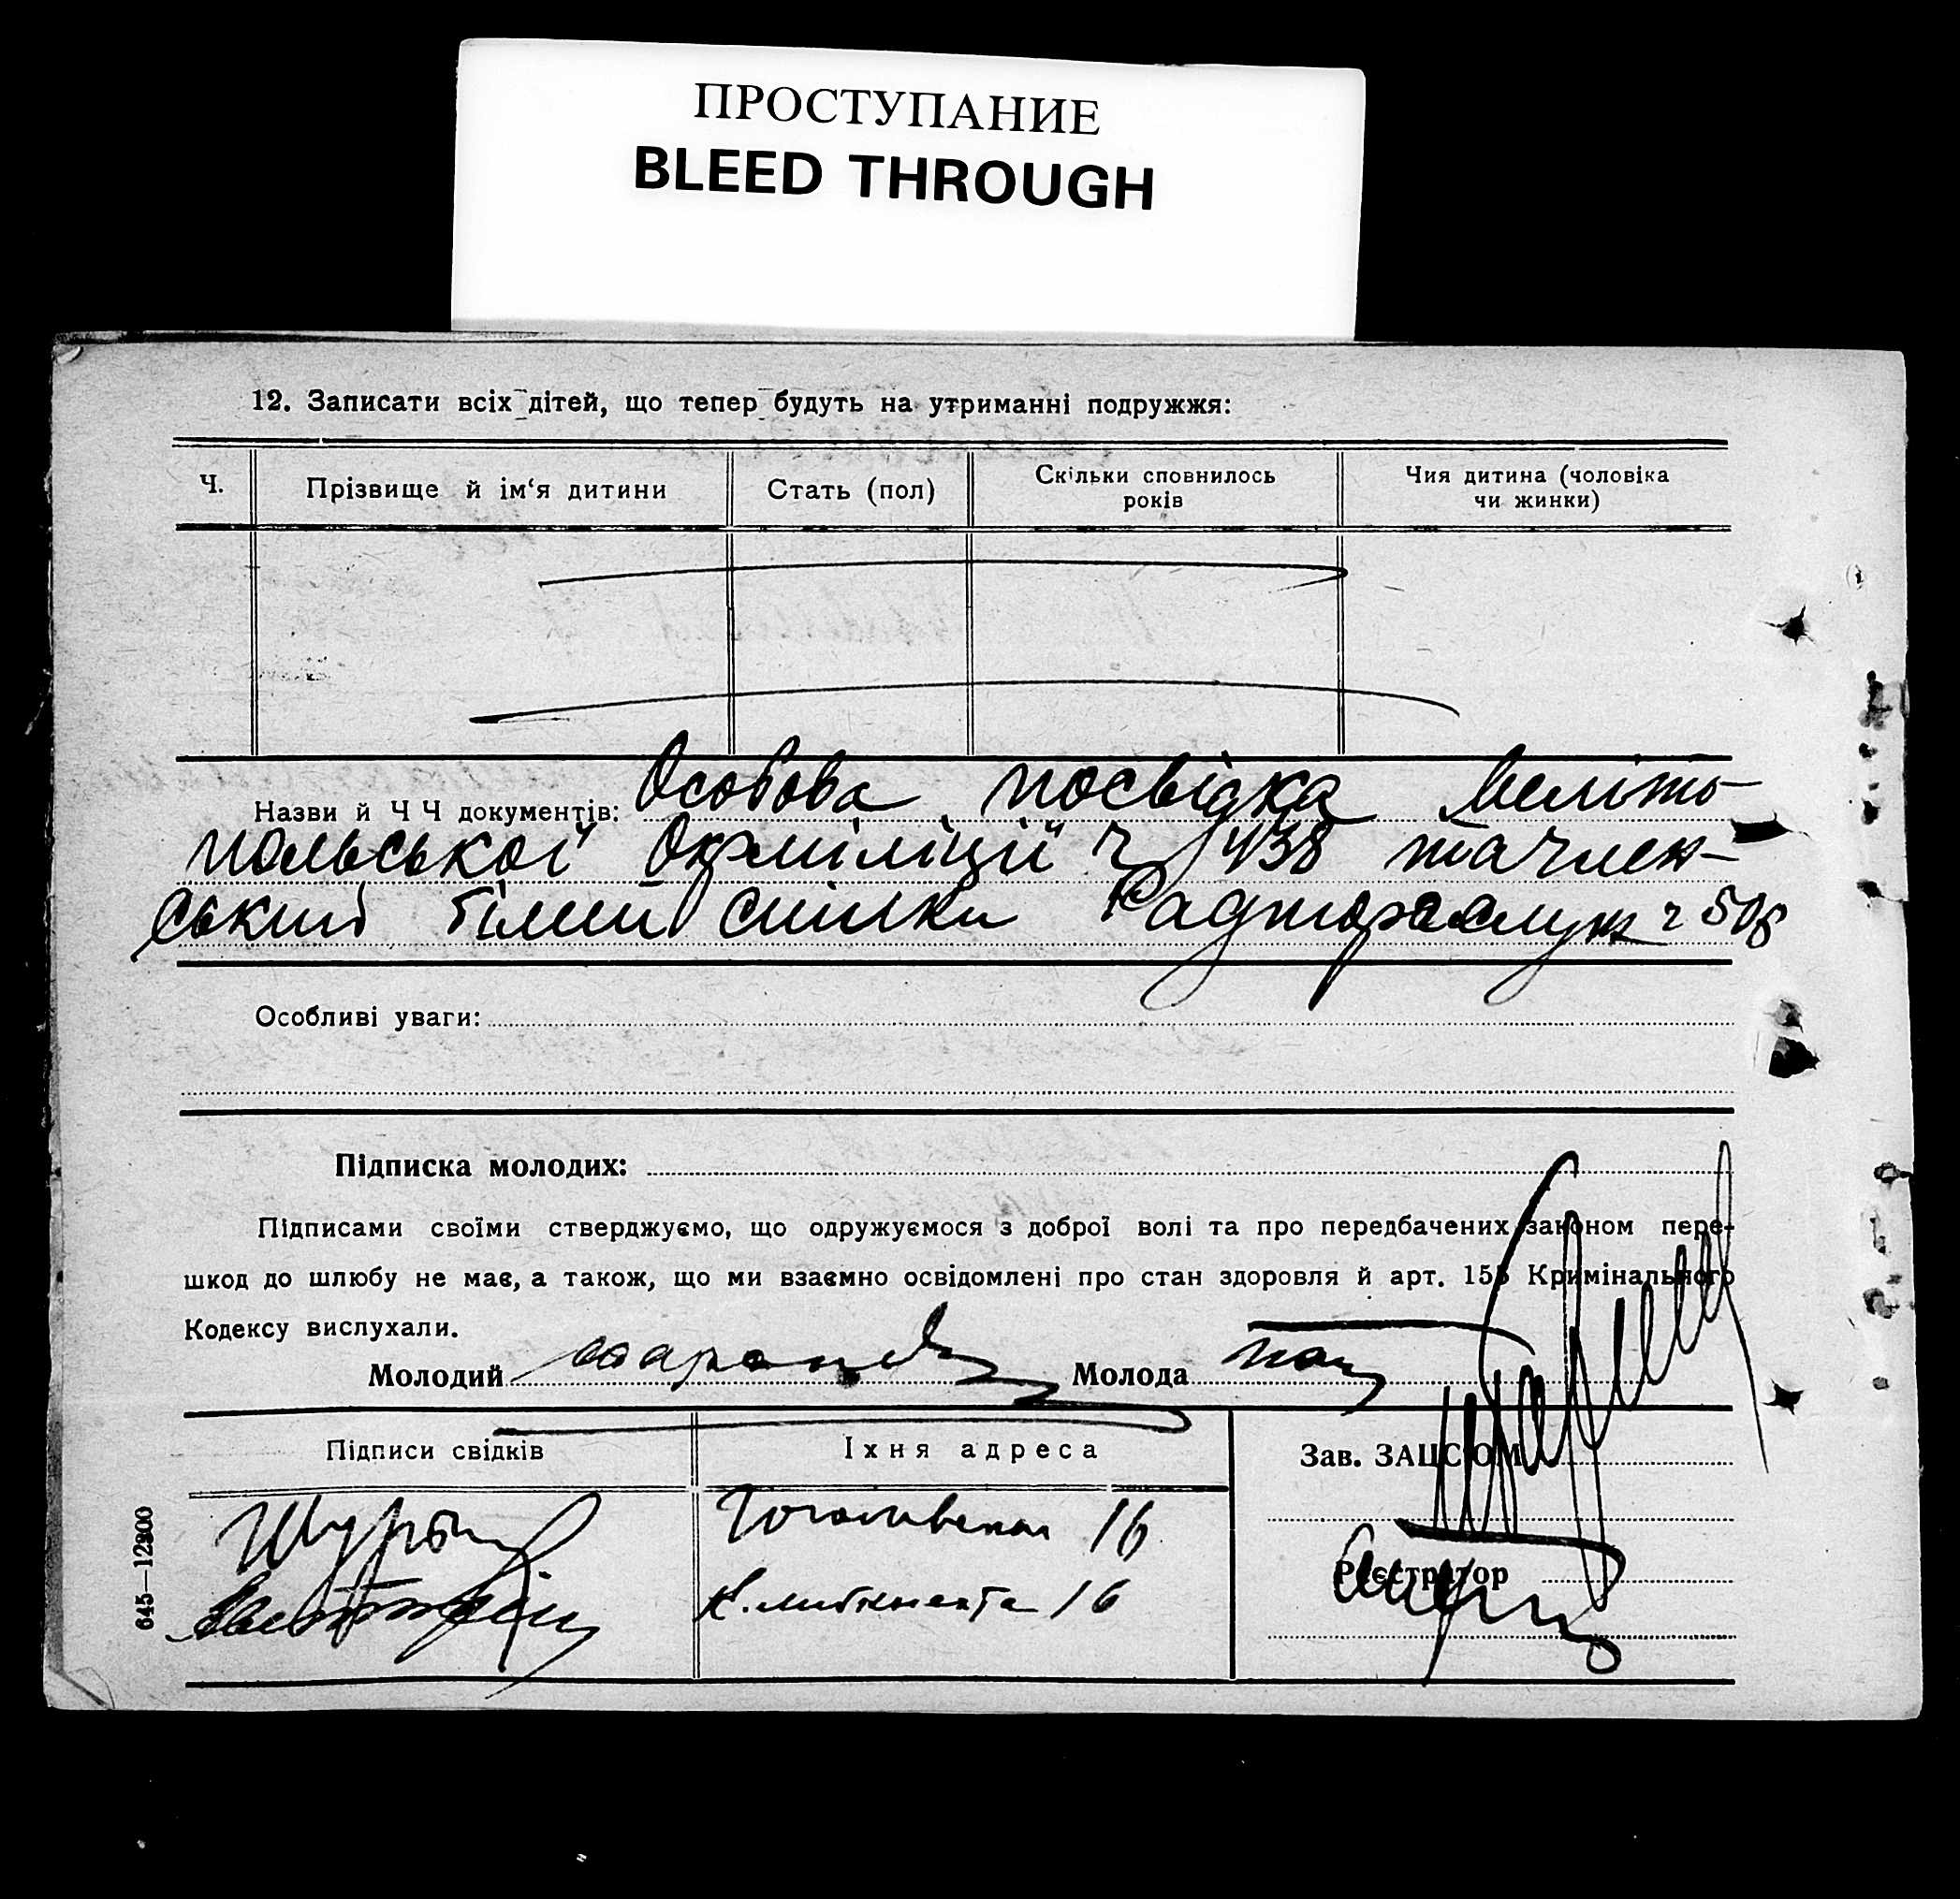 ПРОСТУПАНИЕ
BLEED THROUGH
12. Записати всіх дітей, що тепер будуть на утриманні подружжя:
Ч.
Прізвище й ім‘я дитини
Стать (пол)
Скільки сповнилось
років
Чия дитина (чоловіка
чи жинки)
Назви й Ч Ч документів: Особова посвідка Меліто-
польської Окрміліції ч 438 та член-
ський білет спілки Радторгслуж ч 508
Особливі уваги:
Підписка молодих:
Підписами своїми стверджуємо, що одружуємося з доброї волі та про передбачених законом пере-
шкод до шлюбу не має, а також, що ми взаємно освідомлені про стан здоровля й арт. 155 Кримінального
Кодексу вислухали.
Молодий
Молода
Підписи свідків
Їхня адреса
Зав. ЗАЦСОМ
16
16
Реєстратор
645—12800